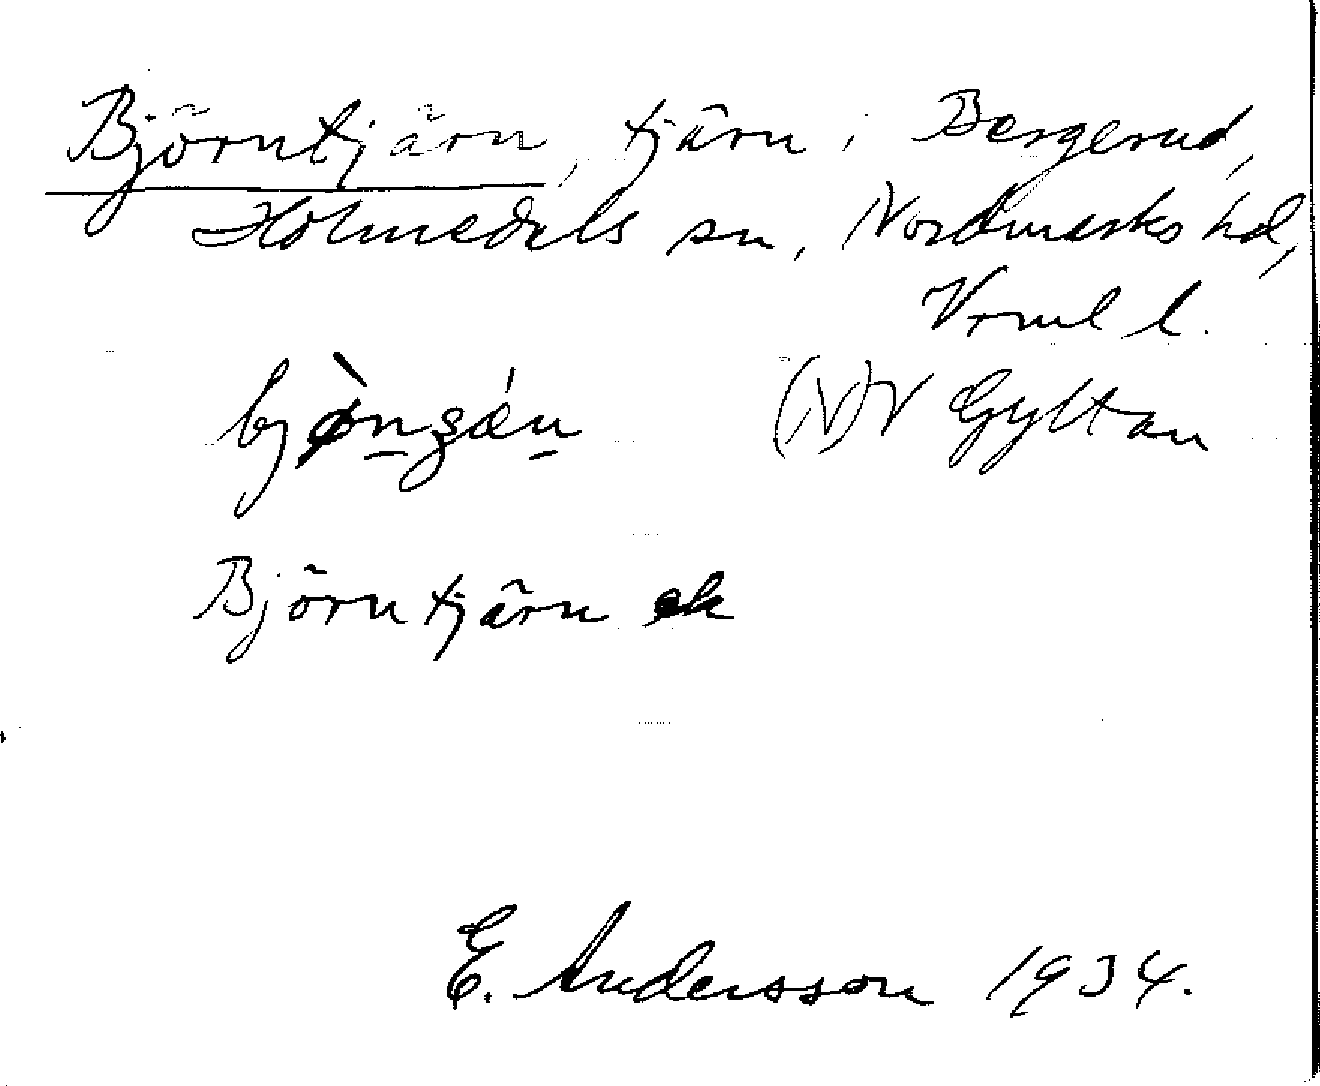 Björntjärn, tjärn i Bergerud,
Holmedals sn, Nordmarks hd,
Vrml l.
(N)V Gyltan
Björntjärn ek
E. Andersson 1934.